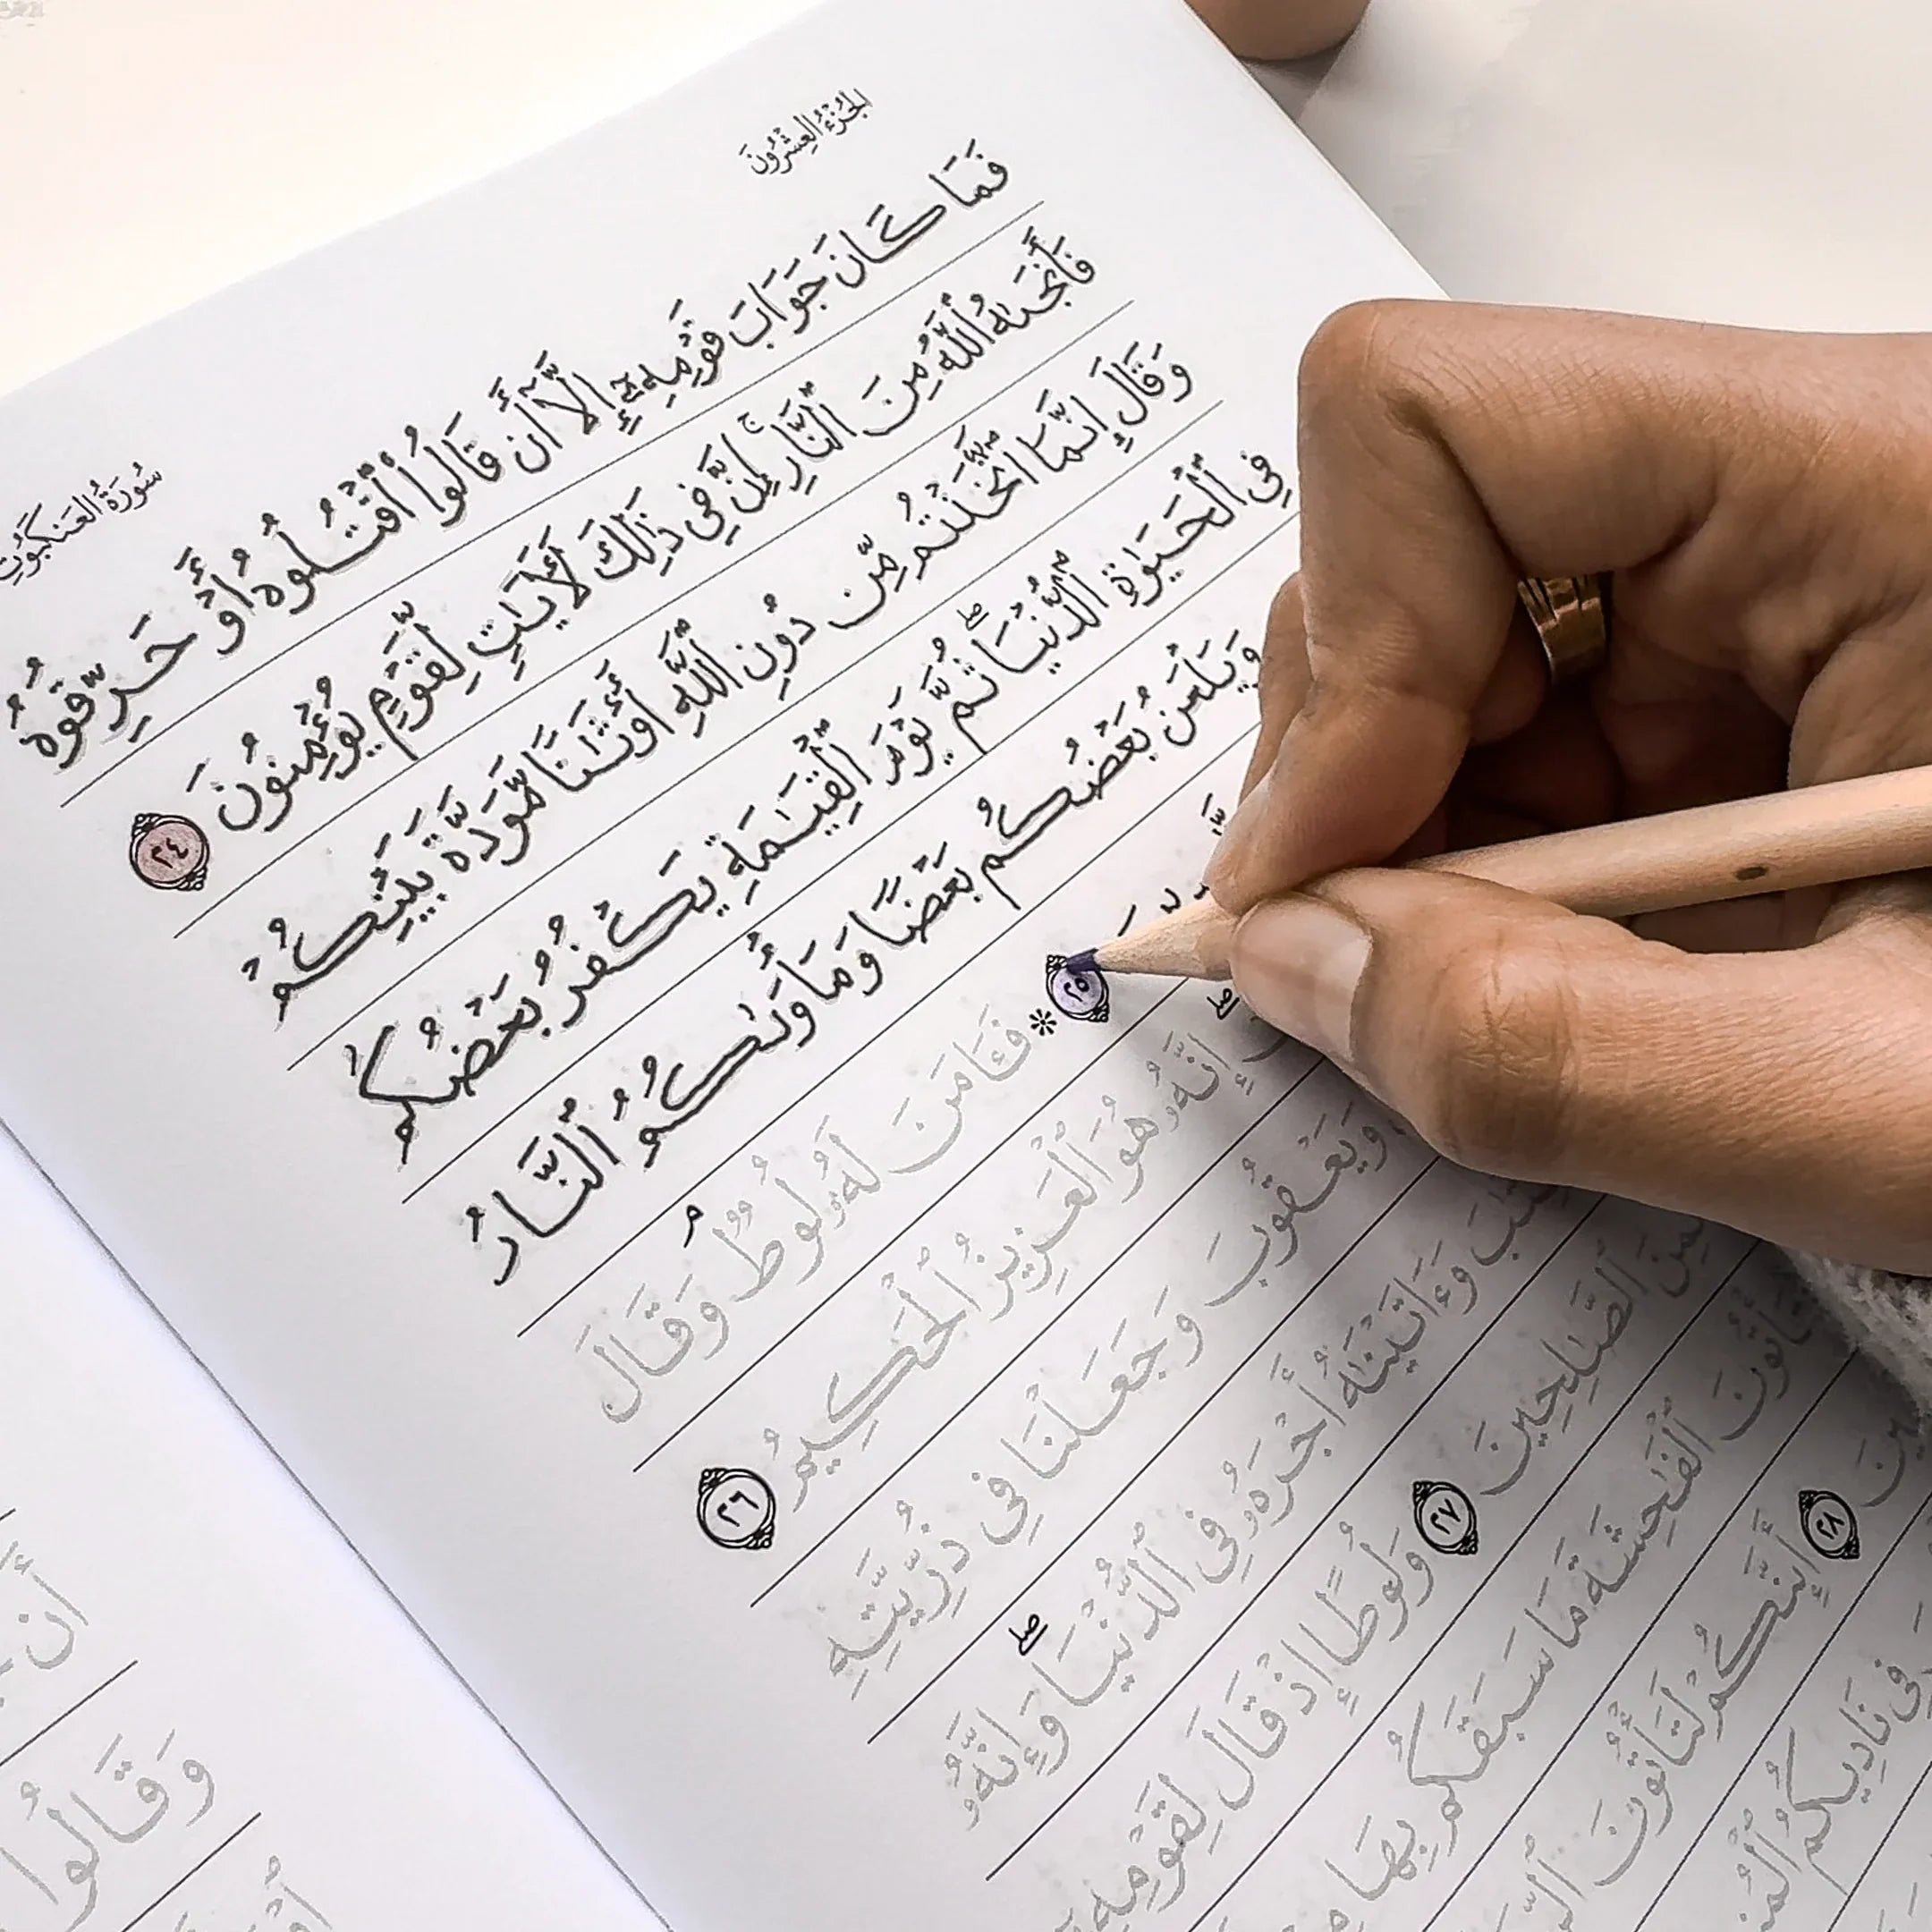 الجُزْءُ العِشْرُونَ
سُورَةُ العَنكَبُوتِ
فَمَا كَانَ جَوَابَ قَوْمِهِۦٓ إِلَّآ أَن قَالُوا۟ ٱقْتُلُوهُ أَوْ حَرِّقُوهُ
فَأَنجَىٰهُ ٱللَّهُ مِنَ ٱلنَّارِ ۚ إِنَّ فِى ذَٰلِكَ لَءَايَٰتٍ لِّقَوْمٍ يُؤْمِنُونَ ٢٤
وَقَالَ إِنَّمَا ٱتَّخَذْتُم مِّن دُونِ ٱللَّهِ أَوْثَٰنًا مَّوَدَّةَ بَيْنِكُمْ
فِى ٱلْحَيَوٰةِ ٱلدُّنْيَا ۖ ثُمَّ يَوْمَ ٱلْقِيَٰمَةِ يَكْفُرُ بَعْضُكُم
وَيَلْعَنُ بَعْضُكُم بَعْضًا وَمَأْوَىٰكُمُ ٱلنَّارُ
٢٥ * فَـَٔامَنَ لَهُۥ لُوطٌ ۘ وَقَالَ
إِنَّهُۥ هُوَ ٱلْعَزِيزُ ٱلْحَكِيمُ ٢٦
وَيَعْقُوبَ وَجَعَلْنَا فِى ذُرِّيَّتِهِ
وَءَاتَيْنَٰهُ أَجْرَهُۥ فِى ٱلدُّنْيَا ۖ وَإِنَّهُۥ
ٱلصَّٰلِحِينَ ٢٧ وَلُوطًا إِذْ قَالَ لِقَوْمِهِۦٓ
ٱلْفَٰحِشَةَ مَا سَبَقَكُم بِهَا
٢٨ أَئِنَّكُمْ لَتَأْتُونَ
فِى نَادِيكُمُ
أَن
وَقَالُوا۟